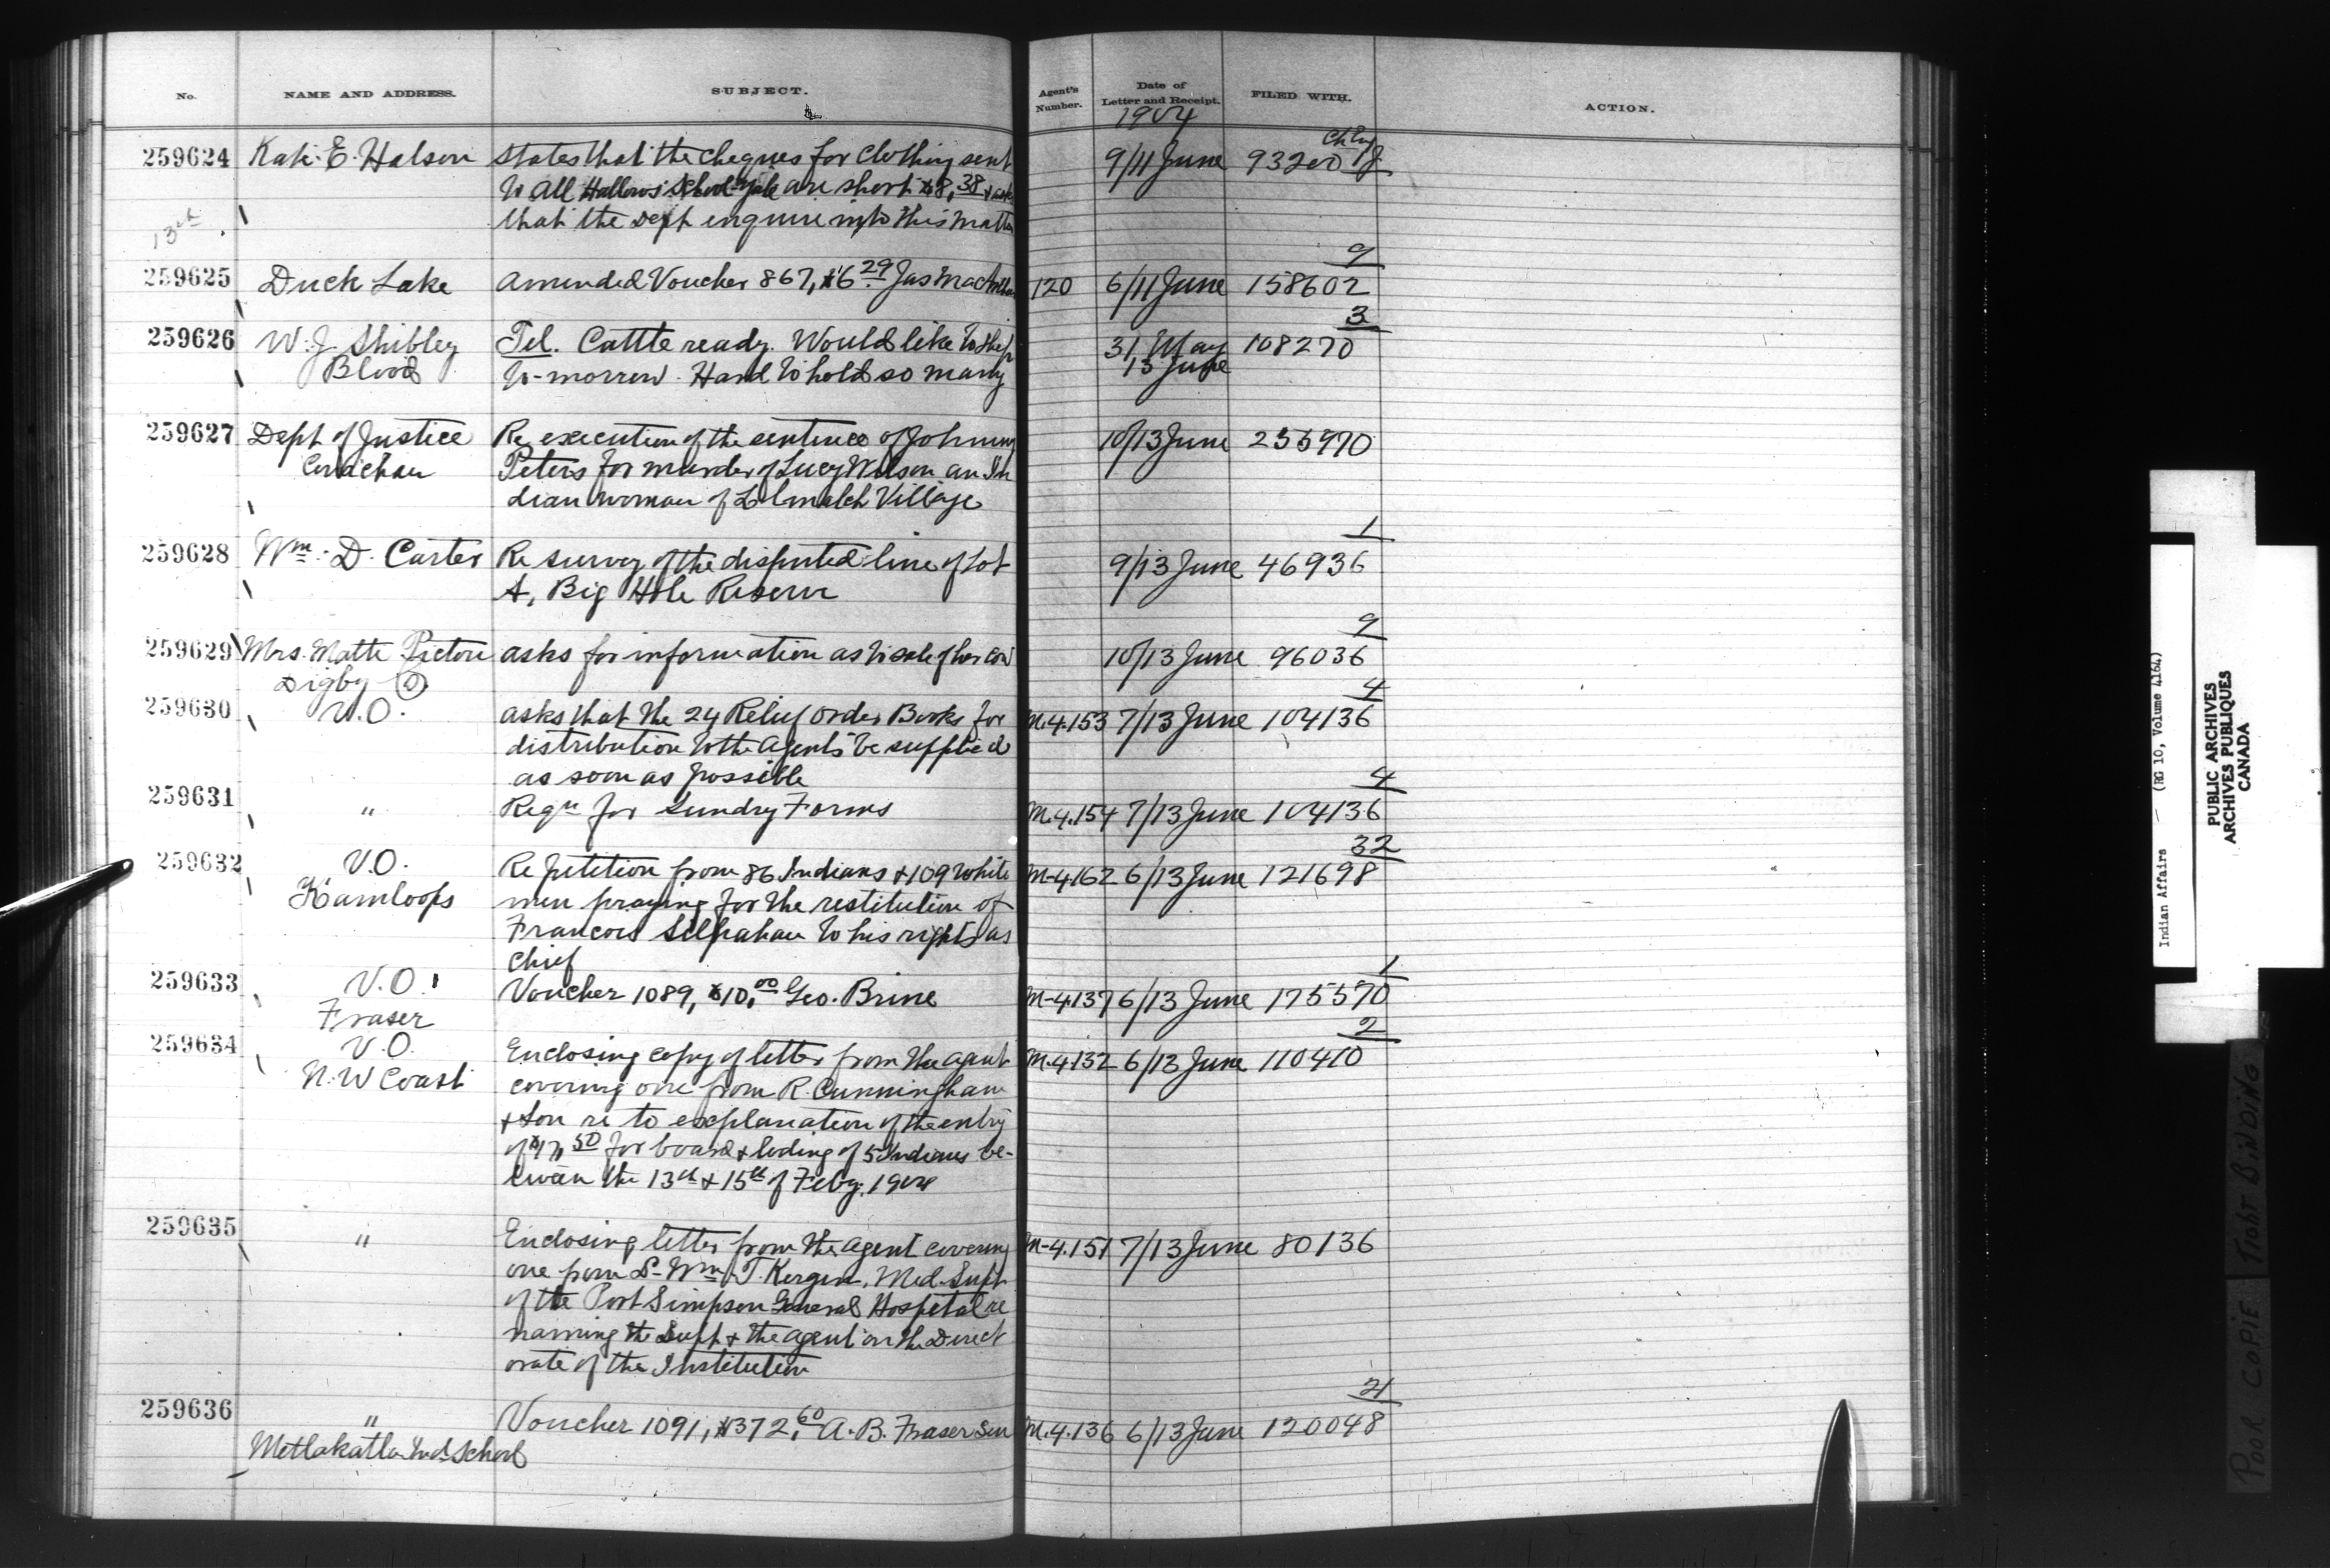 No. NAME AND ADDRESS. SUBJECT. Agent's Number. Date of Letter and Receipt. FILED WITH. ACTION.
1904
259624 E. Halson states that the cheques for Clothing sent 9/11 June 93200
to All Hallows School Yale are short $8.38 & asks
13th that the Dept enquire into this matter
9
259625 Duck Lake Amended Voucher 867, $6.29 Jas MacArthur 120 6/11 June 158602
3
259626 W. J. Shibley Tel. Cattle ready. Would like to ship 31 May 108270
Blood to-morrow. Hard to hold so many 13 June
259627 Dept of Justice Re execution of the sentence of Johnny 10/13 June
Cowichan Peters for murder of Lucy Wilson an In
dian woman of Village
1
259628 Wm. D. Carter Re survey of the disputed line of Lot 9/13 June 46936
A, Big Hole Reserve
9
259629 Mrs. Pictou asks for information as to sale of her cow 10/13 June 96036
Digby
4
259630 V.O. asks that the 24 Relief Order Books for M.4.153 7/13 June 104136
distribution to the Agents be supplied
as soon as possible
4
259631 " Reqn for Sundry Forms M.4.154 7/13 June 104136
32
259632 V.O. Re petition from 86 Indians & 109 white M-4162 6/13 June 121698
Kamloops men praying for the restitution of
Francois to his rights as
Chief
1
259633 V.O. Voucher 1089, $10.00 Geo. Brine M-4137 6/13 June 175570
Fraser
2
259634 V.O. Enclosing copy of letter from the agent M.4132 6/13 June 110410
N.W Coast covering one from R. Cunningham
& Son re to explanation of the entry
of $17.50 for board & loding of 5 Indians be-
tween the 13th & 15th of Feby. 1904
259635 " Enclosing letter from the agent covering M-4.151 7/13 June 80136
one from Dr Wm T. Kergin, Med. Supt
of the Port Simpson General Hospital re
naming the Supt & the agent on the Direct
orate of the Institution
21
259636 " Voucher 1091, $372.60 A. B. Fraser Sen M.4.136 6/13 June 120048
Metlakatla Ind. School
Indian Affairs — (RG 10, Volume 4164)
PUBLIC ARCHIVES
ARCHIVES PUBLIQUES
CANADA
POOR COPIE TIGHT BINDING